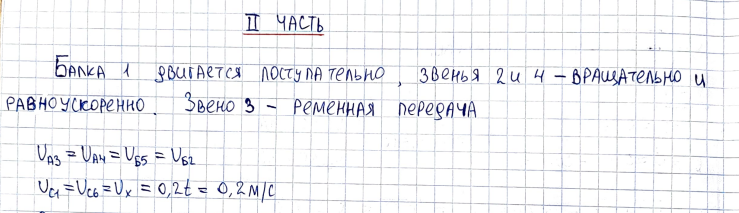 II ЧАСТЬ
БАЛКА 1 ДВИГАЕТСЯ ПОСТУПАТЕЛЬНО, ЗВЕНЬЯ 2 И 4 – ВРАЩАТЕЛЬНО И
РАВНОУСКОРЕННО. ЗВЕНО 3 – РЕМЕННАЯ ПЕРЕДАЧА
U_A3 = U_A4 = U_Б5 = U_Б2
U_C1 = U_C6 = U_x = 0,2t = 0,2 м/с